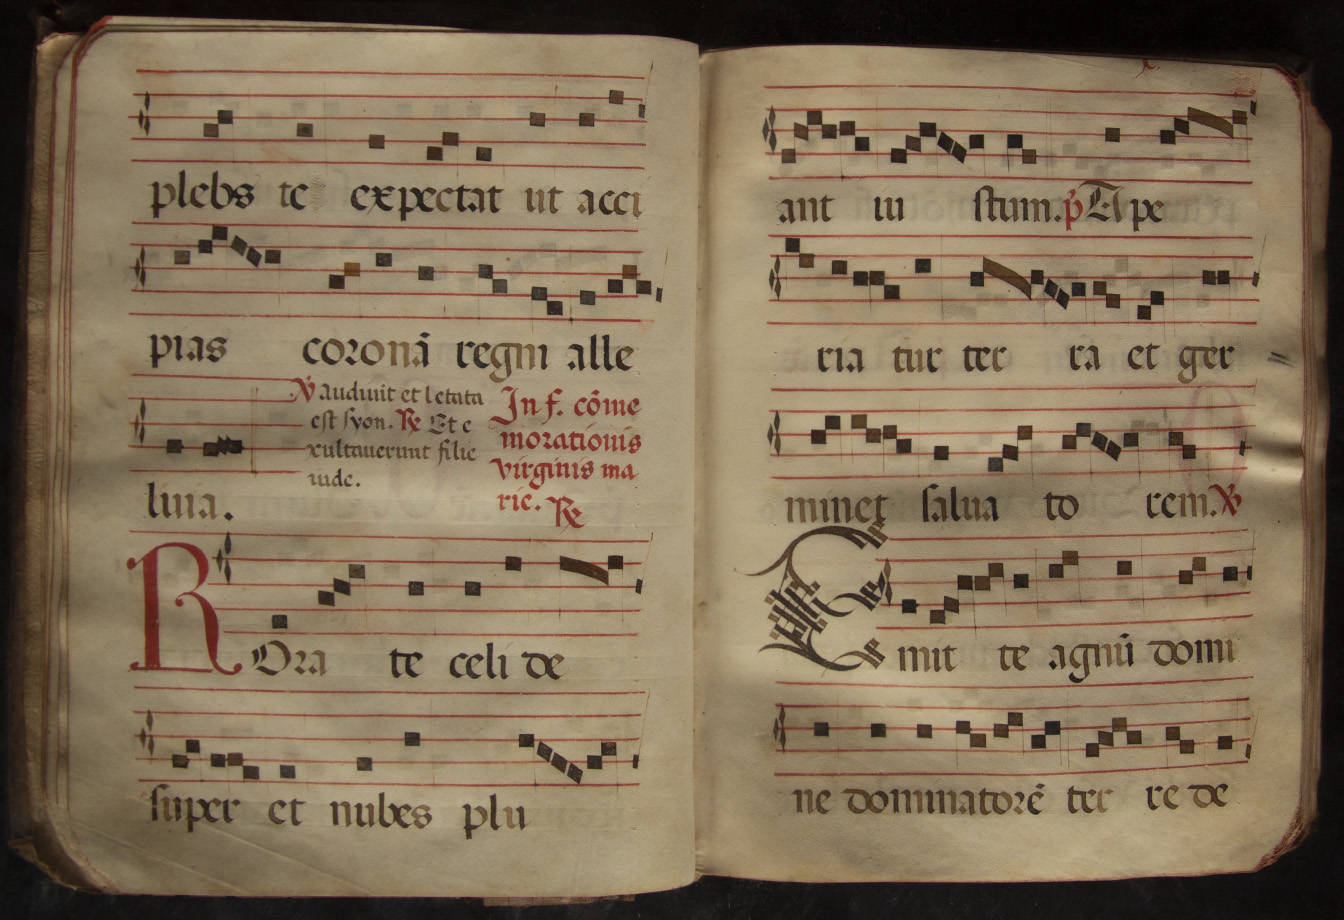 plebs te expectat ut acci
pias coronā regni alle
℣ audiuit et letata
est syon. ℟ Et e
xultauerunt filie
iude.
In f. cōme
morationis
virginis ma
rie. ℟
luia.
ROra te celi de
super et nubes plu
ant iu stum. p̄ Ape
ria tur ter ra et ger
minet salua to rem. ℣
Emit te agnū domi
ne dominatorē ter re de